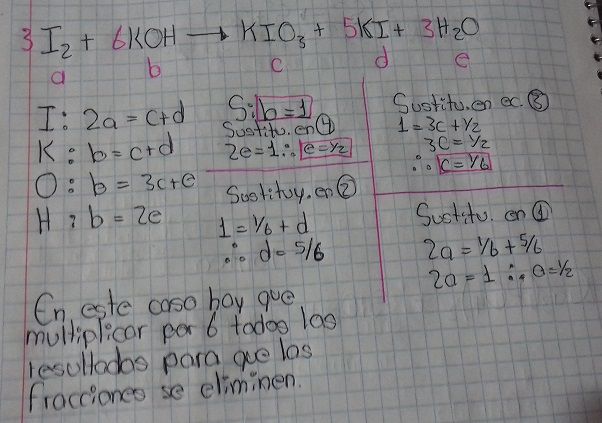 3I₂ + 6KOH → KIO₃ + 5KI + 3H₂O
a b c d e
I: 2a = c+d
K: b = c+d
O: b = 3c+e
H: b = 2e
S: b=1
Sustitu. en ④
2e=1 ∴ e=½
Sustituy. en ②
1 = 1/6 + d
∴ d = 5/6
Sustitu. en ec. ③
1 = 3c + ½
3c = ½
∴ c = 1/6
Sustitu. en ①
2a = 1/6 + 5/6
2a = 1 ∴ a = ½
En este caso hay que
multiplicar por 6 todos los
resultados para que las
fracciones se eliminen.